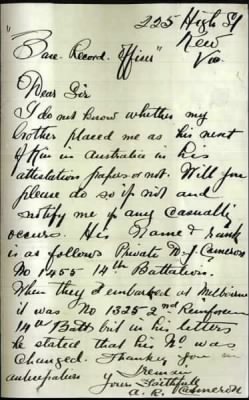 225 High St
Kew
Vic.
"Base Record Officer"
Dear Sir
I do not know whether my
brother placed me as his next
of Kin in Australia in his
attestation papers or not. Will you
please do so if not and
notify me if any casualty
occurs. His Name & rank
is as follows Private W.J. Cameron
No 1455 14th Battalion.
When they embarked at Melbourne
it was No 1325 2nd Reinforcem
14th Batt but in his letters
he stated that his No was
changed. Thanking you in
anticipation I remain
Yours Faithfully
A. R. Cameron